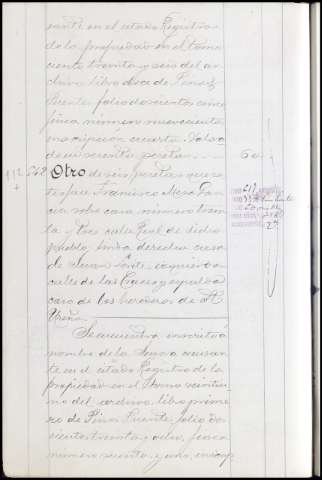 sante en el citado Registro
de la propiedad en el tomo
ciento treinta y seis del ar
chivo, libro doce de Pinos
Puente, folio doscientos cinco
finca número novecientos
inscripción cuarta. Valor
de sesenta pesetas. 60
112 Otro de seis pesetas
Francisco Mesa Gar
cia sobre casa número trein
ta y tres calle Real de dicho
pueblo, linda derecha casa
de Juan izquierda
calle de las Cruces y espalda
casa de los herederos de
Ureña.
Se encuentra inscrito á
nombre de la Señora causan
te en el citado Registro de la
propiedad en el tomo veintiu
no del archivo, libro prime
ro de Pinos Puente, folio do
cientos treinta y ocho, finca
número ciento y uno, inscrip